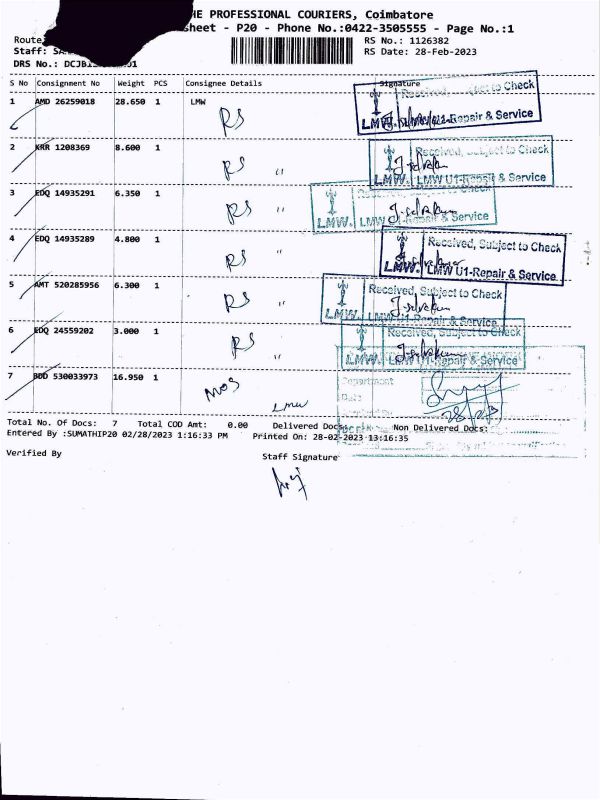 HE PROFESSIONAL COURIERS, Coimbatore
sheet - P20 - Phone No.:0422-3505555 - Page No.:1
Route RS No.: 1126382
Staff: RS Date: 28-Feb-2023
DRS No.:
S No Consignment No Weight PCS Consignee Details Signature
1 AMD 26259018 28.650 1 LMW
RS
Received, Subject to Check
LMW. LMW U1-Repair & Service
2 KRR 1208369 8.600 1
RS "
Received, Subject to Check
LMW. LMW U1-Repair & Service
3 EDQ 14935291 6.350 1
RS "
LMW. LMW U1-Repair & Service
4 EDQ 14935289 4.800 1
RS "
Received, Subject to Check
LMW. LMW U1-Repair & Service
5 AMT 520285956 6.300 1
RS "
Received, Subject to Check
LMW. LMW U1-Repair & Service
6 EDQ 24559202 3.000 1
RS "
Received, Subject to Check
LMW. LMW U1-Repair & Service
7 BDD 530033973 16.950 1
MOS
LMW
Department
Date
Total No. Of Docs: 7 Total COD Amt: 0.00 Delivered Docs: Non Delivered Docs:
Entered By :SUMATHIP20 02/28/2023 1:16:33 PM Printed On: 28-02-2023 13:16:35
Verified By Staff Signature